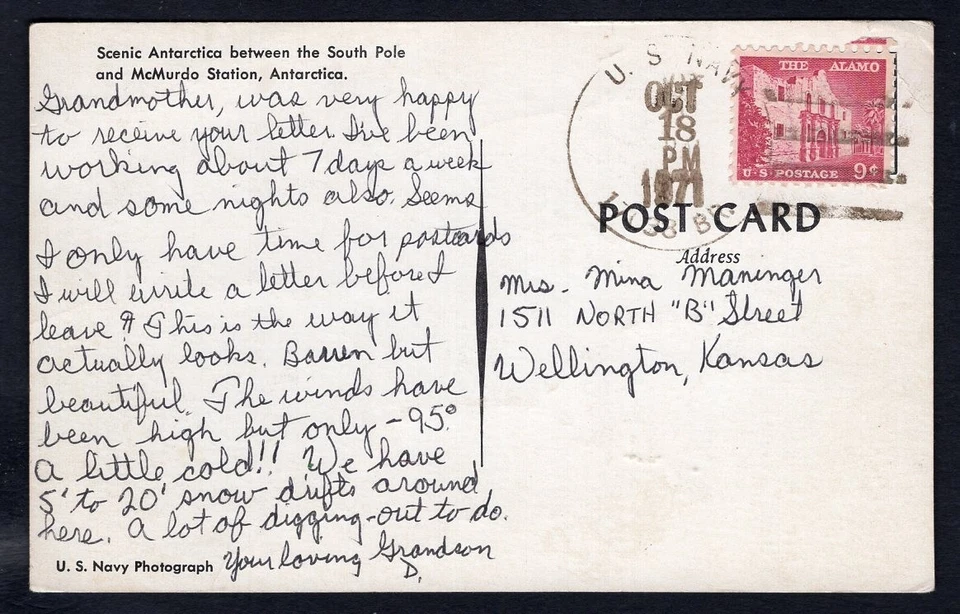 Scenic Antarctica between the South Pole
and McMurdo Station, Antarctica.
Grandmother, was very happy
to receive your letter. I've been
working about 7 days a week
and some nights also. Seems
I only have time for postcards
I will write a letter before I
leave!! This is the way it
actually looks. Barren but
beautiful. The winds have
been high but only -95°.
A little cold!! We have
5' to 20' snow drifts around
here. A lot of digging-out to do.
Your loving Grandson
D.
U. S. Navy Photograph
U. S. NAVY
OCT
18
PM
1971
THE ALAMO
U·S·POSTAGE 9¢
POST CARD
Address
Mrs. Mina Maninger
1511 NORTH "B" Street
Wellington, Kansas